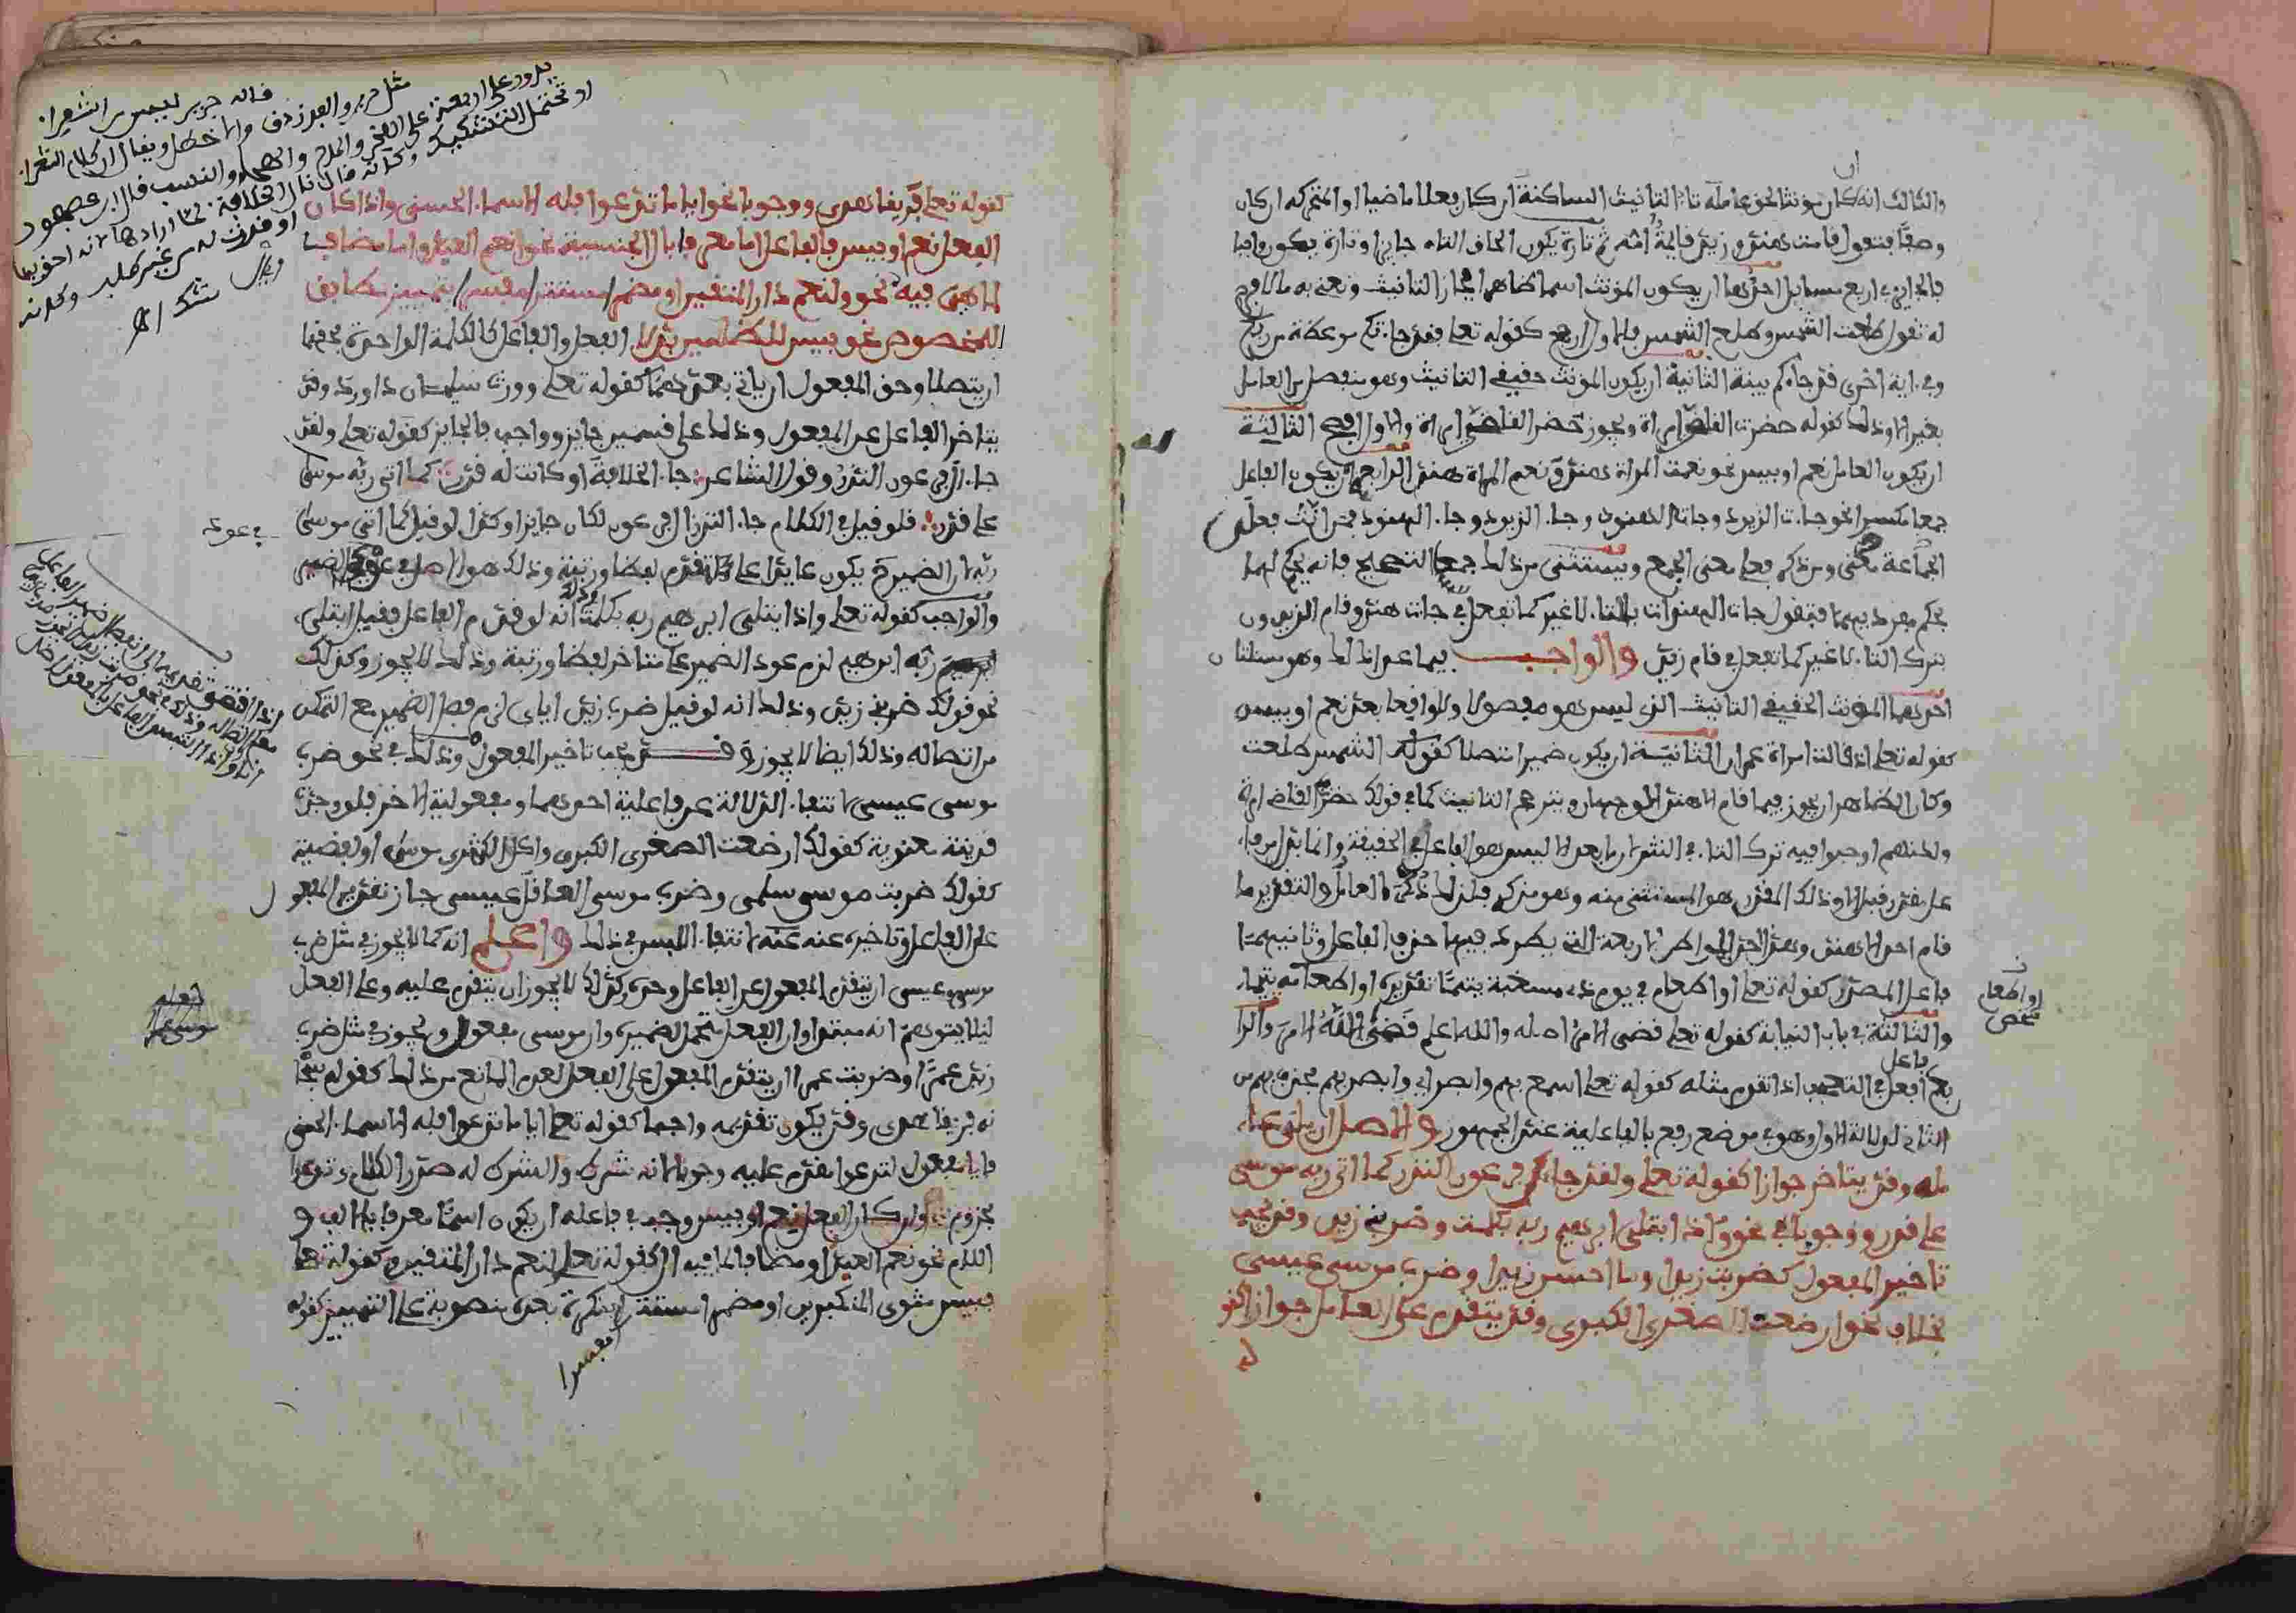 والثالث انه ان كان مونثا لحق عامله تاء التانيث الساكنة ان كان فعلا ماضيا او المتحركة ان كان
وصفا فتقول قامت هند وزيد قائمة امه ثم تارة يكون الحاق التاء جايزا وتارة يكون واجبا
فالجايز في اربع مسايل احدها ان يكون المونث اسما ظاهرا مجاز التانيث ونعني به ما لا فرج
له تقول طلعت الشمس وطلع الشمس والاول ارجح كقوله تعلى قد جاءتكم موعظة من ربكم
وفي اية اخرى قد جاءكم بينة الثانية ان يكون المونث حقيقي التانيث وهو منفصل من العامل
بغير الا وذلك كقوله حضرت القاضي امراة ويجوز حضر القاضي امراة والاول افصح الثالثة
ان يكون العامل نعم او بيس نحو نعمت المراة هند ونعم المراة هند الرابعة ان يكون الفاعل
جمعا مكسرا نحو جاءت الزيود وجاءت الهنود وجاء الزيود وجاء الهنود فمن انث فعلى
الجماعة معنى ومن ذكر فعلى معنى الجمع ويستثنى من ذلك جمعا التصحيح فانه يحكم لهما
بحكم مفرديهما فتقول جاءت الهندات بالتاء لا غير كما تفعل في جاءت هند وقام الزيدون
بترك التاء لا غير كما تفعل في قام زيد والواجب فيما عدا ذلك وهو مسئلتان
احدهما المونث الحقيقي التانيث الذي ليس هو مفصولا ولا واقعا بعد نعم او بيس
كقوله تعلى اذ قالت امراة عمران الثانية ان يكون ضميرا متصلا كقوله الشمس طلعت
وكان الظاهر ان يجوز فيما قام الا هند الوجهان ويترجح التانيث كما في قولك حضر القاضي امراة
ولكنهم اوجبوا فيه ترك التاء في النثر لان ما بعد الا ليس هو الفاعل في الحقيقة وانما بدل من فاعل
مقدر قبل الا وذلك المقدر هو المستثنى منه وهو مذكر فلذلك ذكر العامل والتقدير ما
قام احد الا هند وهذا احد المواطن الاربعة التي يطرد فيها حذف الفاعل وثانيهما
فاعل المصدر كقوله تعلى او اطعام في يوم ذي مسغبة يتيما تقديره او اطعامه يتيما
والثالثة في باب النيابة كقوله تعلى قضي الامر اصله والله اعلم قضى الله الامر والرا
بع فاعل افعل في التعجب اذا تقدم مثله كقوله تعلى اسمع بهم وابصر اي وابصر بهم فحذف بهم من
الثاني لدلالة الاول وهو في موضع رفع بالفاعلية عند الجمهور والاصل ان يلي عا
مله وقد يتاخر جوازا كقوله تعلى ولقد جاء ءال فرعون النذر كما اتى ربه موسى
على قدر ووجوبا في نحو واذ ابتلى ابرهيم ربه بكلمت وضربني زيد وقد يجب
تاخير المفعول كضربت زيدا وما احسن زيدا وضرب موسى عيسى
بخلاف نحو ارضعت الصغرى الكبرى وقد يتقدم على العامل جوازا كقو
له
او اطعام
شخص
كقوله تعلى فريقا هدى ووجوبا نحو ايا ما تدعوا فله الاسماء الحسنى واذا كان
الفعل نعم او بيس فالفاعل اما معرف بال الجنسية نحو نعم العبد واما مضاف
لما هي فيه نحو ولنعم دار المتقين او مضمر مستتر مفسر بتمييز مطابق
للمخصوص نحو بيس للظلمين بدلا الفعل والفاعل كالكلمة الواحدة فحقهما
ان يتصلا وحق المفعول ان ياتي بعدهما كقوله تعلى وورث سليمان داود وقد
يتاخر الفاعل عن المفعول وذلك على قسمين جايز وواجب فالجايز كقوله تعلى ولقد
جاء ءال فرعون النذر وقول الشاعر جاء الخلافة او كانت له قدرا كما اتى ربه موسى
على قدر فلو قيل في الكلام جاء النذر ال فرعون لكان جايزا وكذا لو قيل كما اتى موسى
ربه لان الضمير يكون عايدا على متقدم لفظا ورتبة وذلك هو الاصل في عود الضمير
والواجب كقوله تعلى واذ ابتلى ابرهيم ربه بكلمت وذلك انه لو قدم الفاعل فقيل ابتلى
ربه ابرهيم لزم عود الضمير على متاخر لفظا ورتبة وذلك لا يجوز وكذلك
نحو قولك ضربني زيد وذلك انه لو قيل ضرب زيد اياي لزم فصل الضمير مع التمكن
من اتصاله وذلك ايضا لا يجوز وقد يجب تاخير المفعول وذلك في نحو ضرب
موسى عيسى لانتفاء الدلالة على فاعلية احدهما ومفعولية الاخر فلو وجدت
قرينة معنوية كقولك ارضعت الصغرى الكبرى واكل الكمثرى موسى او لفظية
كقولك ضربت موسى سلمى وضرب موسى العاقل عيسى جاز تقديم المفعول
على الفاعل وتاخيره عنه لانتفاء اللبس في ذلك واعلم انه كما لا يجوز في مثل ضرب
موسى عيسى ان يتقدم المفعول عن الفاعل وحده كذلك لا يجوز ان يتقدم عليه وعلى الفعل
ليلا يتوهم انه مبتدا وان الفعل متحمل لضميره وان موسى مفعول ويجوز في مثل ضرب
زيد عمرا وضربت عمرا ان يتقدم المفعول على الفعل لعدم المانع من ذلك كقوله سبحا
نه فريقا هدى وقد يكون تقديمه واجبا كقوله تعلى ايا ما تدعوا فله الاسماء الحسنى
فايا مفعول لتدعوا مقدم عليه وجوبا لانه شرط والشرط له صدر الكلام وتدعوا
مجزوم به وان كان الفعل نعم او بيس وجب في فاعله ان يكون اسما معرفا بالالف و
اللام نحو نعم العبد او مضافا لما فيه ال كقوله تعلى ولنعم دار المتقين كقوله تعلى
فبيس مثوى المتكبرين او مضمرا مستترا مفسرا بنكرة بعده منصوبة على التمييز كقوله
قاله جرير ليس من الشعراء
مثل جرير والفرزدق والاخطل ويقال ان كلام الشعراء